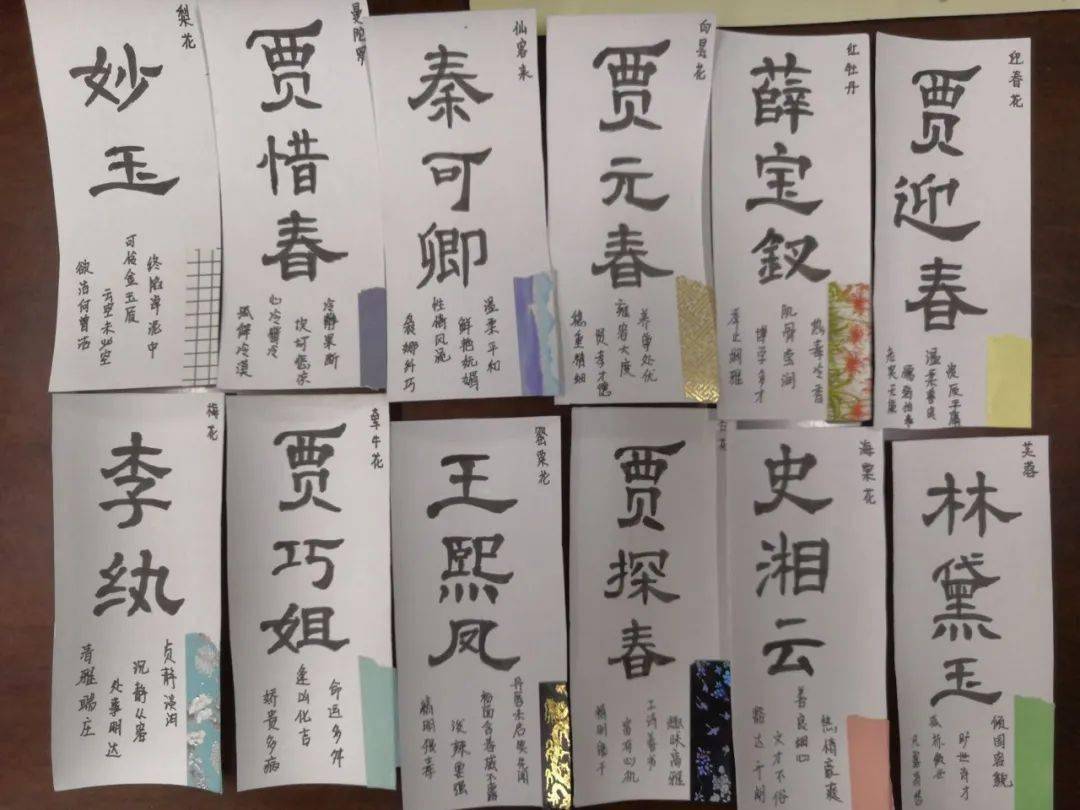 梨花
妙玉
终陷淖泥中
可怜金玉质
云空未必空
欲洁何曾洁
曼陀罗
贾惜春
冷静果断
坎坷悲凉
心冷嘴冷
孤僻冷漠
仙客来
秦可卿
温柔平和
鲜艳妩媚
性情风流
袅娜纤巧
白昙花
贾元春
养尊处优
雍容大度
贤孝才德
稳重精细
红牡丹
薛宝钗
热毒冷香
肌骨莹润
博学多才
举止娴雅
迎春花
贾迎春
懦弱怕事
温柔善良
老实无能
梅花
李纨
贞静淡泊
沉静从容
处事明达
清雅端庄
牵牛花
贾巧姐
命运多舛
逢凶化吉
娇贵多病
罂粟花
王熙凤
丹唇未启笑先闻
泼辣要强
贾探春
趣味高雅
工诗善书
富有心机
精明能干
海棠花
史湘云
热情豪爽
善良细心
文才不俗
豁达开朗
芙蓉
林黛玉
倾国容貌
旷世诗才
孤标傲世